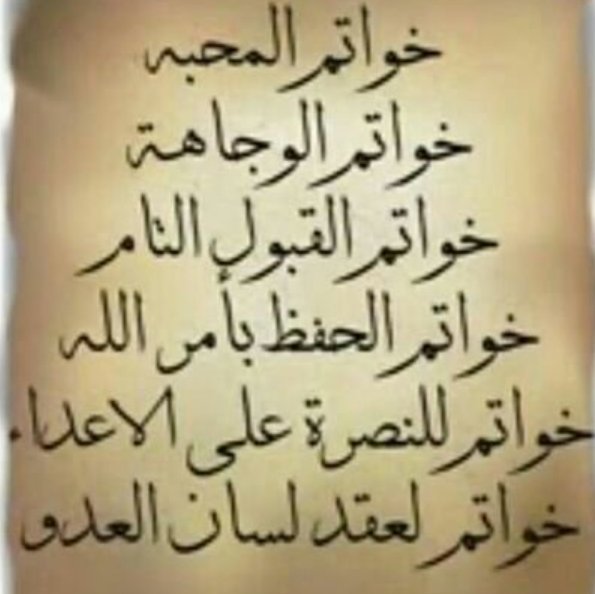 خواتم المحبه
خواتم الوجاهة
خواتم القبول التام
خواتم الحفظ بأمر الله
خواتم للنصرة على الاعداء
خواتم لعقد لسان العدو